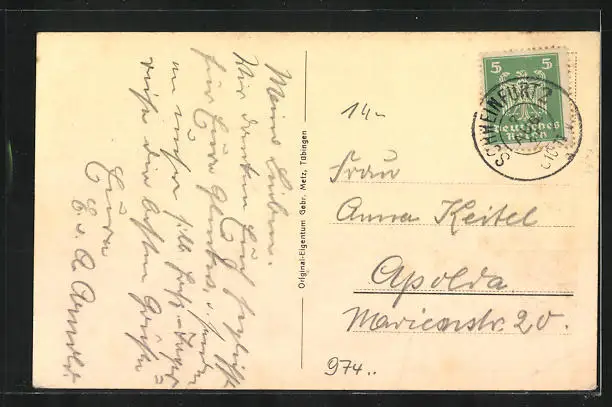 Meine Lieben.
Wir danken Euch herzlichst
für Eure Glückw. u. senden
zu unser silb. Hochz.
die besten Grüße
Eure
E. u. A. Arnold.
Original-Eigentum Gebr. Metz, Tübingen
5 5
Deutsches
Reich
SCHWEINFURT 2
14-
Frau
Anna Keitel
Apolda
Marienstr. 20.
974..